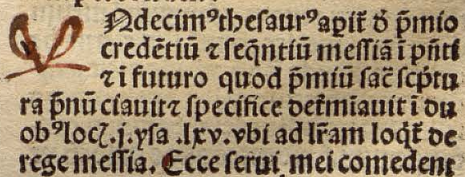 Ndecimꝰtheſaurꝰapit᷑ ð p̄mio
credētiū ⁊ ſeq̄ntiū meſſiā ī pn̄ti
⁊ ī futuro quod p̄miū ſac᷑ ſcp̄tu
ra p̄nūciauit⁊ ſpecifice det᷑miauit ī du
obꝰlocꝭ.j.yſa .lxv.vbi ad lr̄am loqt᷑ de
rege meſſia. Ecce ſerui mei comedent